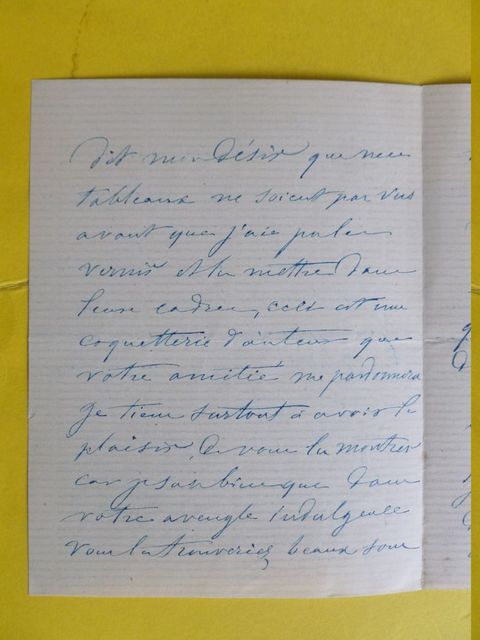 dit mon désir que mes
tableaux ne soient pas vus
avant que j'aie pu les
vernir et les mettre dans
leurs cadres, ceci est une
coquetterie d'auteur que
votre amitié me pardonnera
je tiens surtout à avoir le
plaisir de vous les montrer
car je sais bien que dans
votre aveugle indulgence
vous les trouveriez beaux sans